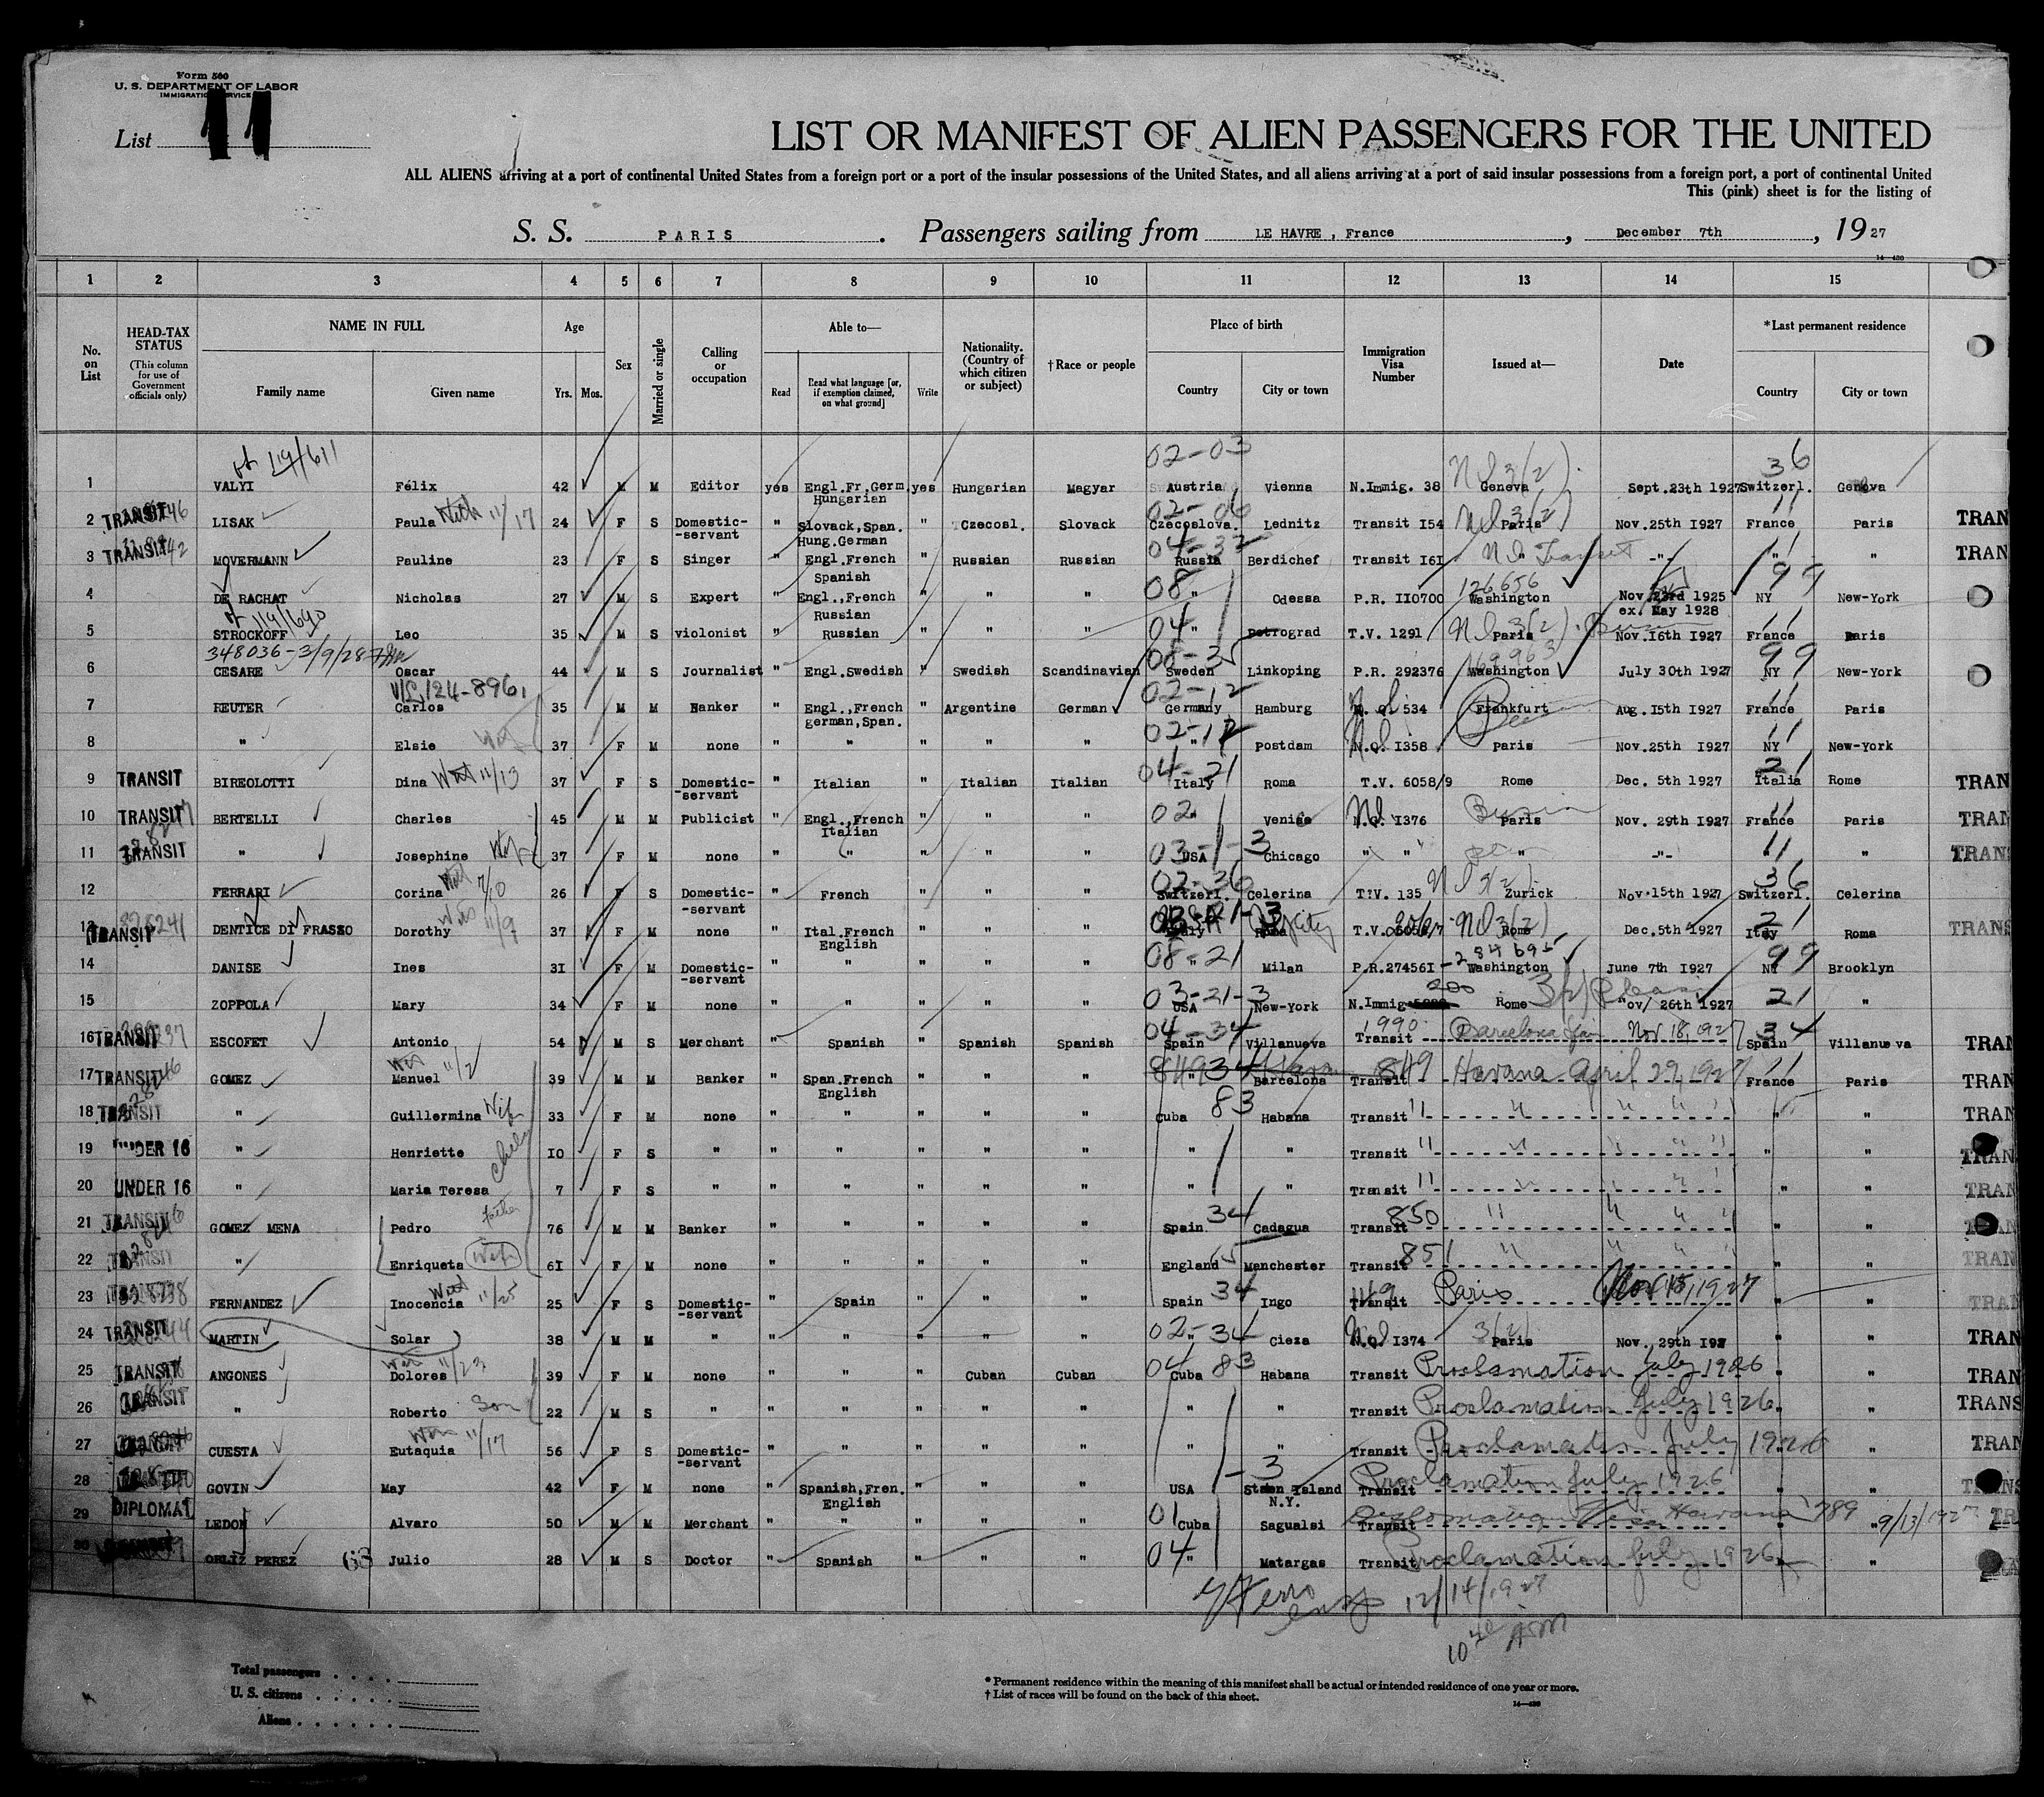 Form 500
U. S. DEPARTMENT OF LABOR
IMMIGRATION SERVICE
List 11
LIST OR MANIFEST OF ALIEN PASSENGERS FOR THE UNITED
ALL ALIENS arriving at a port of continental United States from a foreign port or a port of the insular possessions of the United States, and all aliens arriving at a port of said insular possessions from a foreign port, a port of continental United
This (pink) sheet is for the listing of
S. S. PARIS. Passengers sailing from LE HAVRE, France, December 7th, 1927
14-430
1 2 3 4 5 6 7 8 9 10 11 12 13 14 15
No. on List HEAD-TAX STATUS (This column for use of Government officials only) NAME IN FULL Family name Given name Age Yrs. Mos. Sex Married or single Calling or occupation Able to— Read Read what language [or, if exemption claimed, on what ground] Write Nationality. (Country of which citizen or subject) †Race or people Place of birth Country City or town Immigration Visa Number Issued at— Date *Last permanent residence Country City or town
119/611 02-03 Nl 3(2) 36
1 VALYI Félix 42 M M Editor yes Engl.Fr.Germ. Hungarian yes Hungarian Magyar Austria Vienna N.Immig. 38 Geneva Sept.23th 1927 Switzerl. Geneva
02-06 Nl 3(2) 11
2 TRANSIT LISAK Paula 11/17 24 F S Domestic-servant " Slovack,Span. Hung.German " Czecosl. Slovack Czecoslova. Lednitz Transit I54 Paris Nov.25th I927 France Paris TRAN
Nl Transit 11
3 TRANSIT MOVERMANN Pauline 23 F S Singer " Engl.French Spanish " Russian Russian Russia Berdichef Transit I6I " -"- " " TRAN
08 126656 99
4 DE RACHAT Nicholas 27 M S Expert " Engl.,French Russian " " " " Odessa P.R. II0700 Washington Nov.23rd I925 ex. May 1928 NY New-York
119/640 04 Nl 3(2) 11
5 STROCKOFF Leo 35 M S violonist " Russian " " " " Petrograd T.V. 1291 Paris Nov.16th I927 France Paris
348036-3/9/28 99
6 CESARE Oscar 44 M S Journalist " Engl.Swedish " Swedish Scandinavian Sweden Linkoping P.R. 292376 Washington July 30th 1927 NY New-York
02-12 11
7 REUTER Carlos 35 M M Banker " Engl.,French german,Span. " Argentine German Germany Hamburg 534 Frankfurt Aug.I5th I927 France Paris
02-12 11
8 " Elsie 37 F M none " " " " " " Postdam N.Q. I358 Paris Nov.25th I927 NY New-York
04-21 21
9 TRANSIT BIREOLOTTI Dina 11/13 37 F S Domestic-servant " Italian " Italian Italian Italy Roma T.V. 6058/9 Rome Dec. 5th 1927 Italia Rome TRAN
02 11
10 TRANSIT BERTELLI Charles 45 M M Publicist " Engl.,French Italian " " " " Venise I376 Paris Nov. 29th I927 France Paris TRAN
03-1-3 11
11 TRANSIT " Josephine 37 F M none " " " " " USA Chicago " " " -"- " " TRANS
02-36 36
12 FERRARI Corina 7/10 26 F S Domestic-servant " French " " " Switzerl. Celerina T.V. 135 Zurick Nov.15th 1927 Switzerl. Celerina
Nl 3(2) 21
13 TRANSIT DENTICE DI FRASSO Dorothy 11/9 37 F M none " Ital.French English " " " Italy Roma City T.V. Rome Dec.5th 1927 Italy Roma TRANS
08-21 284695 99
14 DANISE Ines 3I F M Domestic-servant " " " " " " Milan P.R.27456I Washington June 7th I927 NY Brooklyn
03-21-3 200 21
15 ZOPPOLA Mary 34 F M none " " " " " USA New-York N.Immig Rome Nov/ 26th 1927 "
04-34 1990 34
16 TRANSIT ESCOFET Antonio 54 M S Merchant " Spanish " Spanish Spanish Spain Villanueva Transit Barcelona Nov 18, 1927 Spain Villanueva TRAN
17 TRANSIT GOMEZ Manuel 11/2 39 M M Banker " Span.French English " " " " Barcelona Transit 849 Havana April 29, 1927 France Paris TRAN
18 TRANSIT " Guillermina Wife 33 F M none " " " " " Cuba 83 Habana Transit " " " " " " TRAN
19 UNDER 16 " Henriette 10 F S " " " " " " " " Transit " " " " " " TRAN
20 UNDER 16 " Maria Teresa 7 F S " " " " " " " " Transit " " " " " " TRAN
21 TRANSIT GOMEZ MENA Pedro Father 76 M M Banker " " " " " Spain 34 Cadagua Transit 850 " " " " " TRAN
22 TRANSIT " Enriqueta Wife 6I F M none " " " " " England Manchester Transit 851 " " " " " TRAN
23 TRANSIT FERNANDEZ Inocencia 11/25 25 F S Domestic-servant " Spain " " " Spain 34 Ingo Transit Paris Nov 15, 1927 " " TRAN
24 TRANSIT MARTIN Solar 38 M M " " " " " " 02-34 " Cieza N.Q. I374 3(2) Paris Nov. 29th I927 " " TRAN
25 TRANSIT ANGONES Dolores 11/23 39 F M none " " " Cuban Cuban 04 83 Cuba Habana Transit Proclamation July 1926 " " TRAN
26 TRANSIT " Roberto Son 22 M S " " " " " " " " Transit Proclamation July 1926 " " TRANS
27 CUESTA Eutaquia 11/17 56 F S Domestic-servant " " " " " " " Transit Proclamation July 1926 " " TRAN
28 GOVIN May 42 F M none " Spanish,Fren. English " " " USA 3 Staten Island N.Y. Transit Proclamation July 1926 " "
29 DIPLOMAT LEDON Alvaro 50 M M Merchant " " " " " 01 Cuba Sagualsi Transit Diplomatique Visa Havana 789 9/13/1927 " "
30 ORLIZ PEREZ 63 Julio 28 M S Doctor " Spanish " " " 04 " Matargas Transit Proclamation July 1926 " "
12/14/1927
Total passengers
U. S. citizens
Aliens
* Permanent residence within the meaning of this manifest shall be actual or intended residence of one year or more.
† List of races will be found on the back of this sheet.
14-430